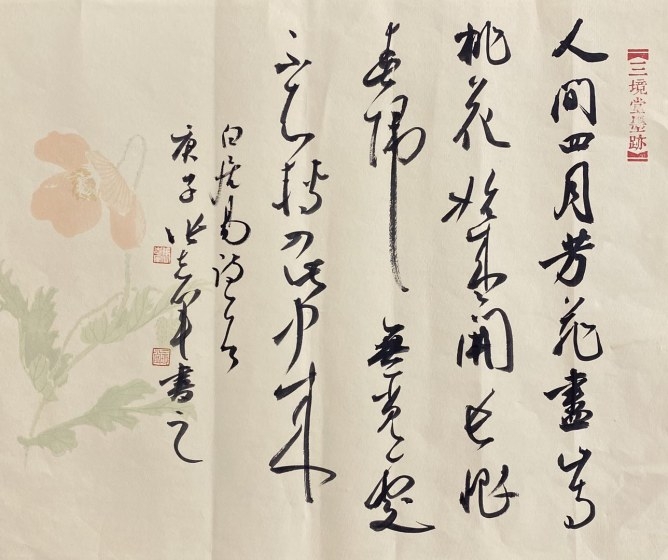 【三境堂墨跡】
人間四月芳菲盡山寺
桃花始盛開長恨
春歸無覓處
不知轉入此中來
白居易詩一首
庚子書之